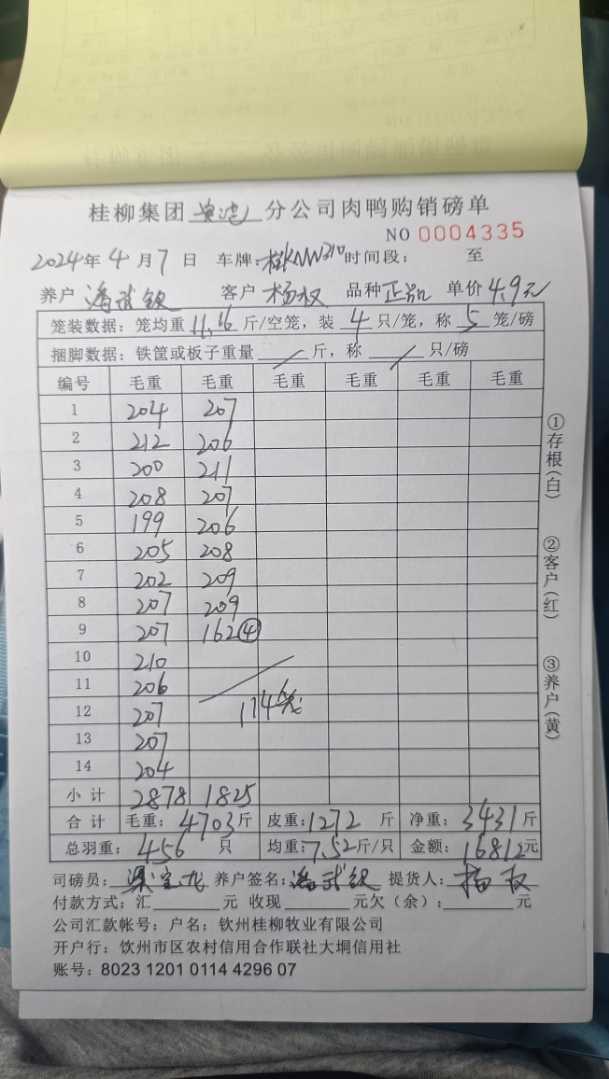 桂柳集团 分公司肉鸭购销磅单
NO 0004335
2024年4月7日 车牌: 时间段: 至
养户 潘武钦 客户 杨权 品种 正品 单价 4.9元
笼装数据: 笼均重 11.16 斤/空笼, 装 4 只/笼, 称 5 笼/磅
捆脚数据: 铁筐或板子重量 / 斤, 称 / 只/磅
编号 毛重 毛重 毛重 毛重 毛重 毛重
1 204 207
2 212 206
3 200 211
4 208 207
5 199 206
6 205 208
7 202 209
8 207 209
9 207 162④
10 210
11 206
12 207 114笼
13 207
14 204
小计 2878 1825
合计 毛重: 4703斤 皮重: 1272 斤 净重: 3431斤
总羽重: 456 只 均重: 7.52斤/只 金额: 16812元
司磅员: 养户签名: 潘武钦 提货人: 杨权
付款方式: 汇 元 收现 元欠(余): 元
公司汇款帐号: 户名: 钦州桂柳牧业有限公司
开户行: 钦州市区农村信用合作联社大垌信用社
账号: 8023 1201 0114 4296 07
①存根(白)
②客户(红)
③养户(黄)